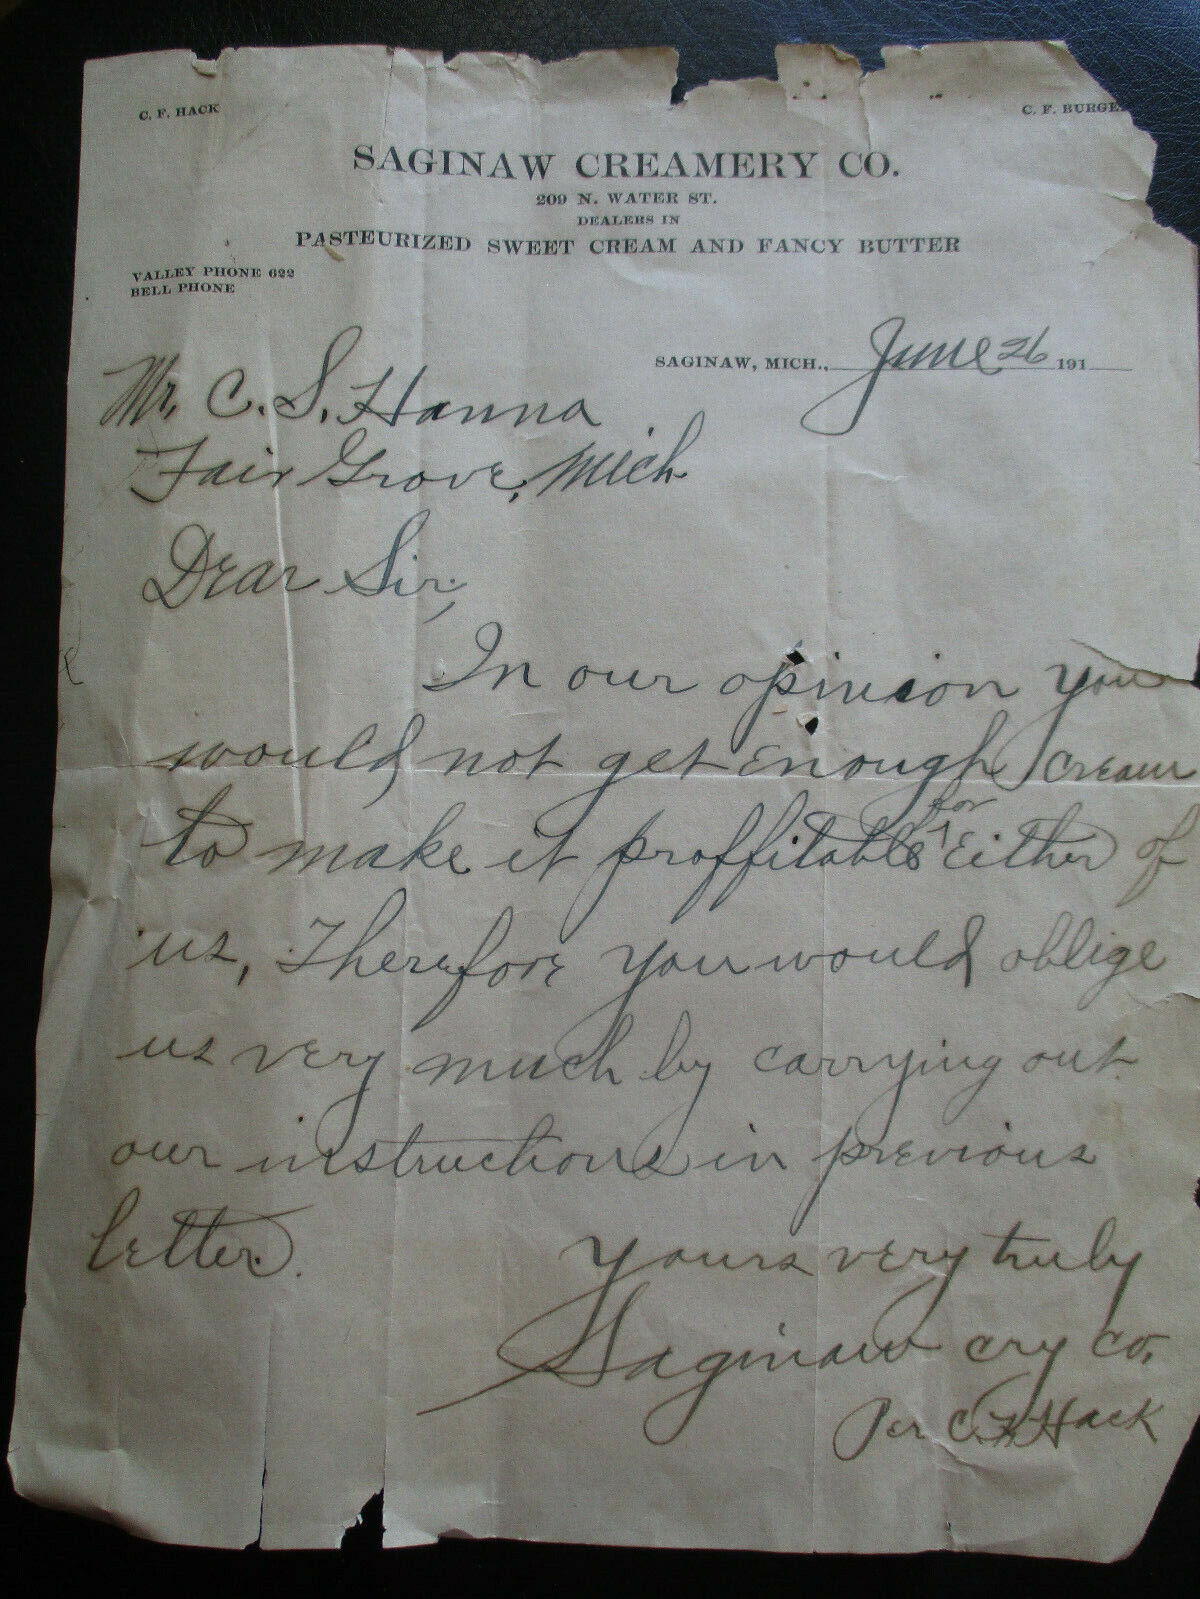 C. F. HACK
C. F. BURGE
SAGINAW CREAMERY CO.
209 N. WATER ST.
DEALERS IN
PASTEURIZED SWEET CREAM AND FANCY BUTTER
VALLEY PHONE 622
BELL PHONE
SAGINAW, MICH., June 26 191
Mr. C. S. Hanna
Fair Grove, Mich.
Dear Sir,
In our opinion you
would not get enough cream
to make it proffitable for either of
us, Therefore you would oblige
us very much by carrying out
our instructions in previous
letter.
Yours very truly
Saginaw cry co.
Per C. F. Hack